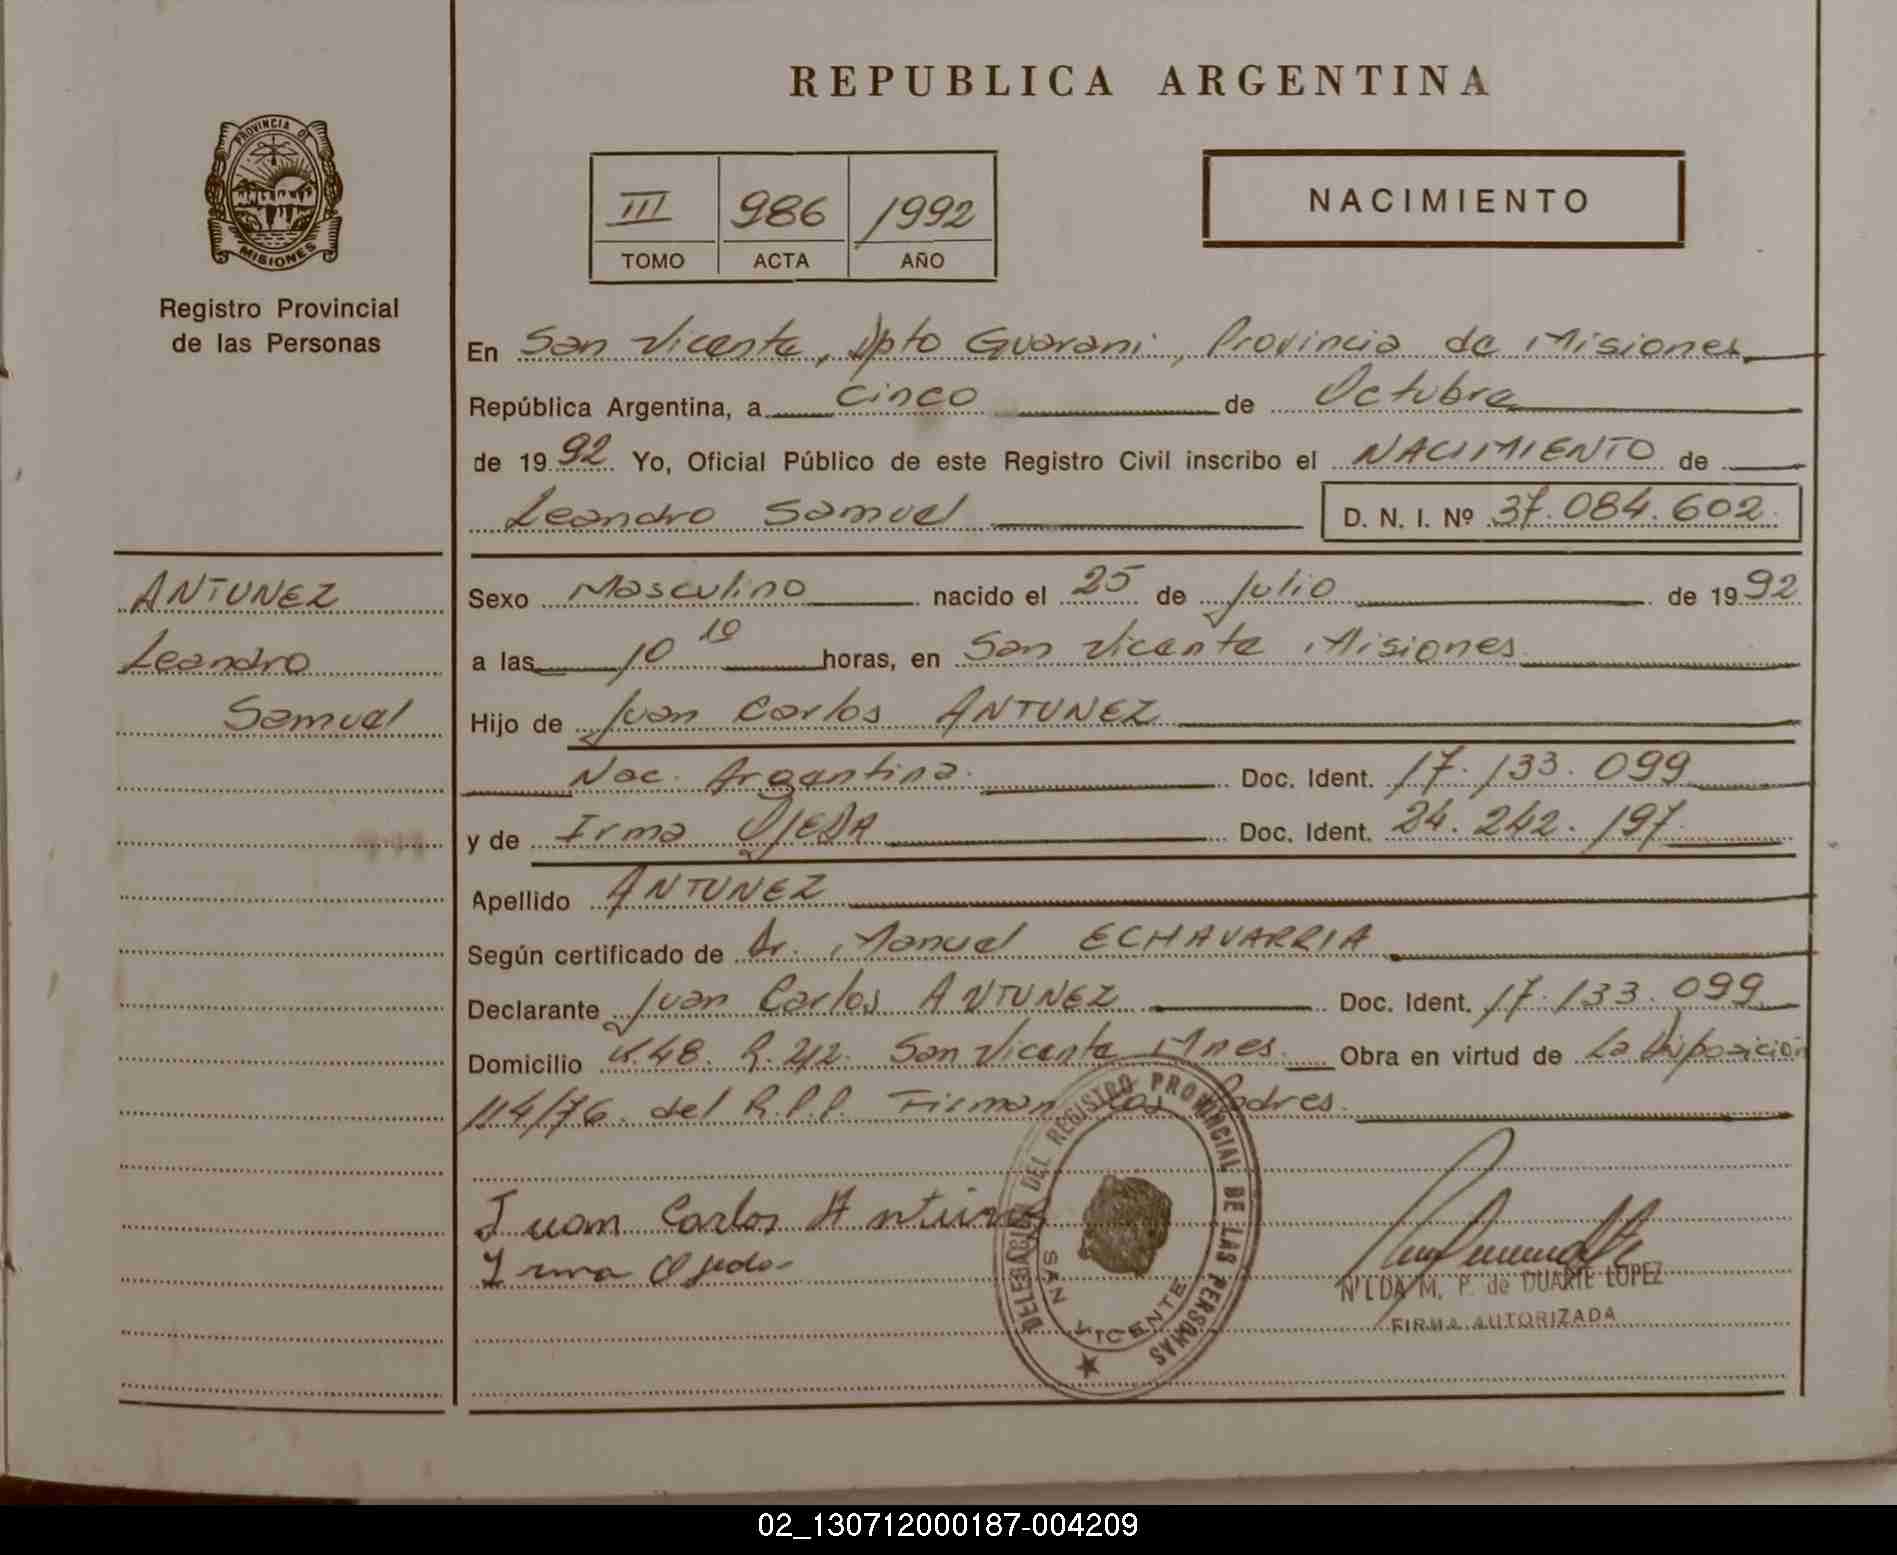 REPUBLICA ARGENTINA
PROVINCIA DE
MISIONES
Registro Provincial
de las Personas
III 986 1992
TOMO ACTA AÑO
NACIMIENTO
En San Vicente, Dpto Guarani, Provincia de Misiones
República Argentina, a cinco de Octubre
de 1992 Yo, Oficial Público de este Registro Civil inscribo el NACIMIENTO de
Leandro Samuel D. N. I. Nº 37.084.602
ANTUNEZ
Leandro
Samuel
Sexo Masculino nacido el 25 de Julio de 1992
a las 10 10 horas, en San Vicente Misiones
Hijo de Juan Carlos ANTUNEZ
Nac. Argentina. Doc. Ident. 17.133.099
y de Irma OJEDA Doc. Ident. 24.242.197
Apellido ANTUNEZ
Según certificado de Dr. Manuel ECHAVARRIA
Declarante Juan Carlos ANTUNEZ Doc. Ident. 17.133.099
Domicilio K.48. R. 212. San Vicente Mnes. Obra en virtud de La Disposición
114/76. del R.P.P. Firman los Padres.
Juan Carlos Antunez
Irma Ojeda
DELEGACION DEL REGISTRO PROVINCIAL DE LAS PERSONAS
SAN VICENTE
NILDA M. P. de DUARTE LOPEZ
FIRMA AUTORIZADA
02_130712000187-004209